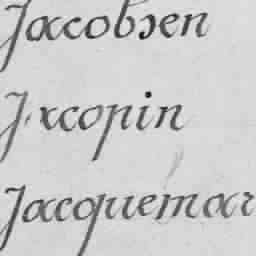 Jacobsen
Jacopin
Jacquemar